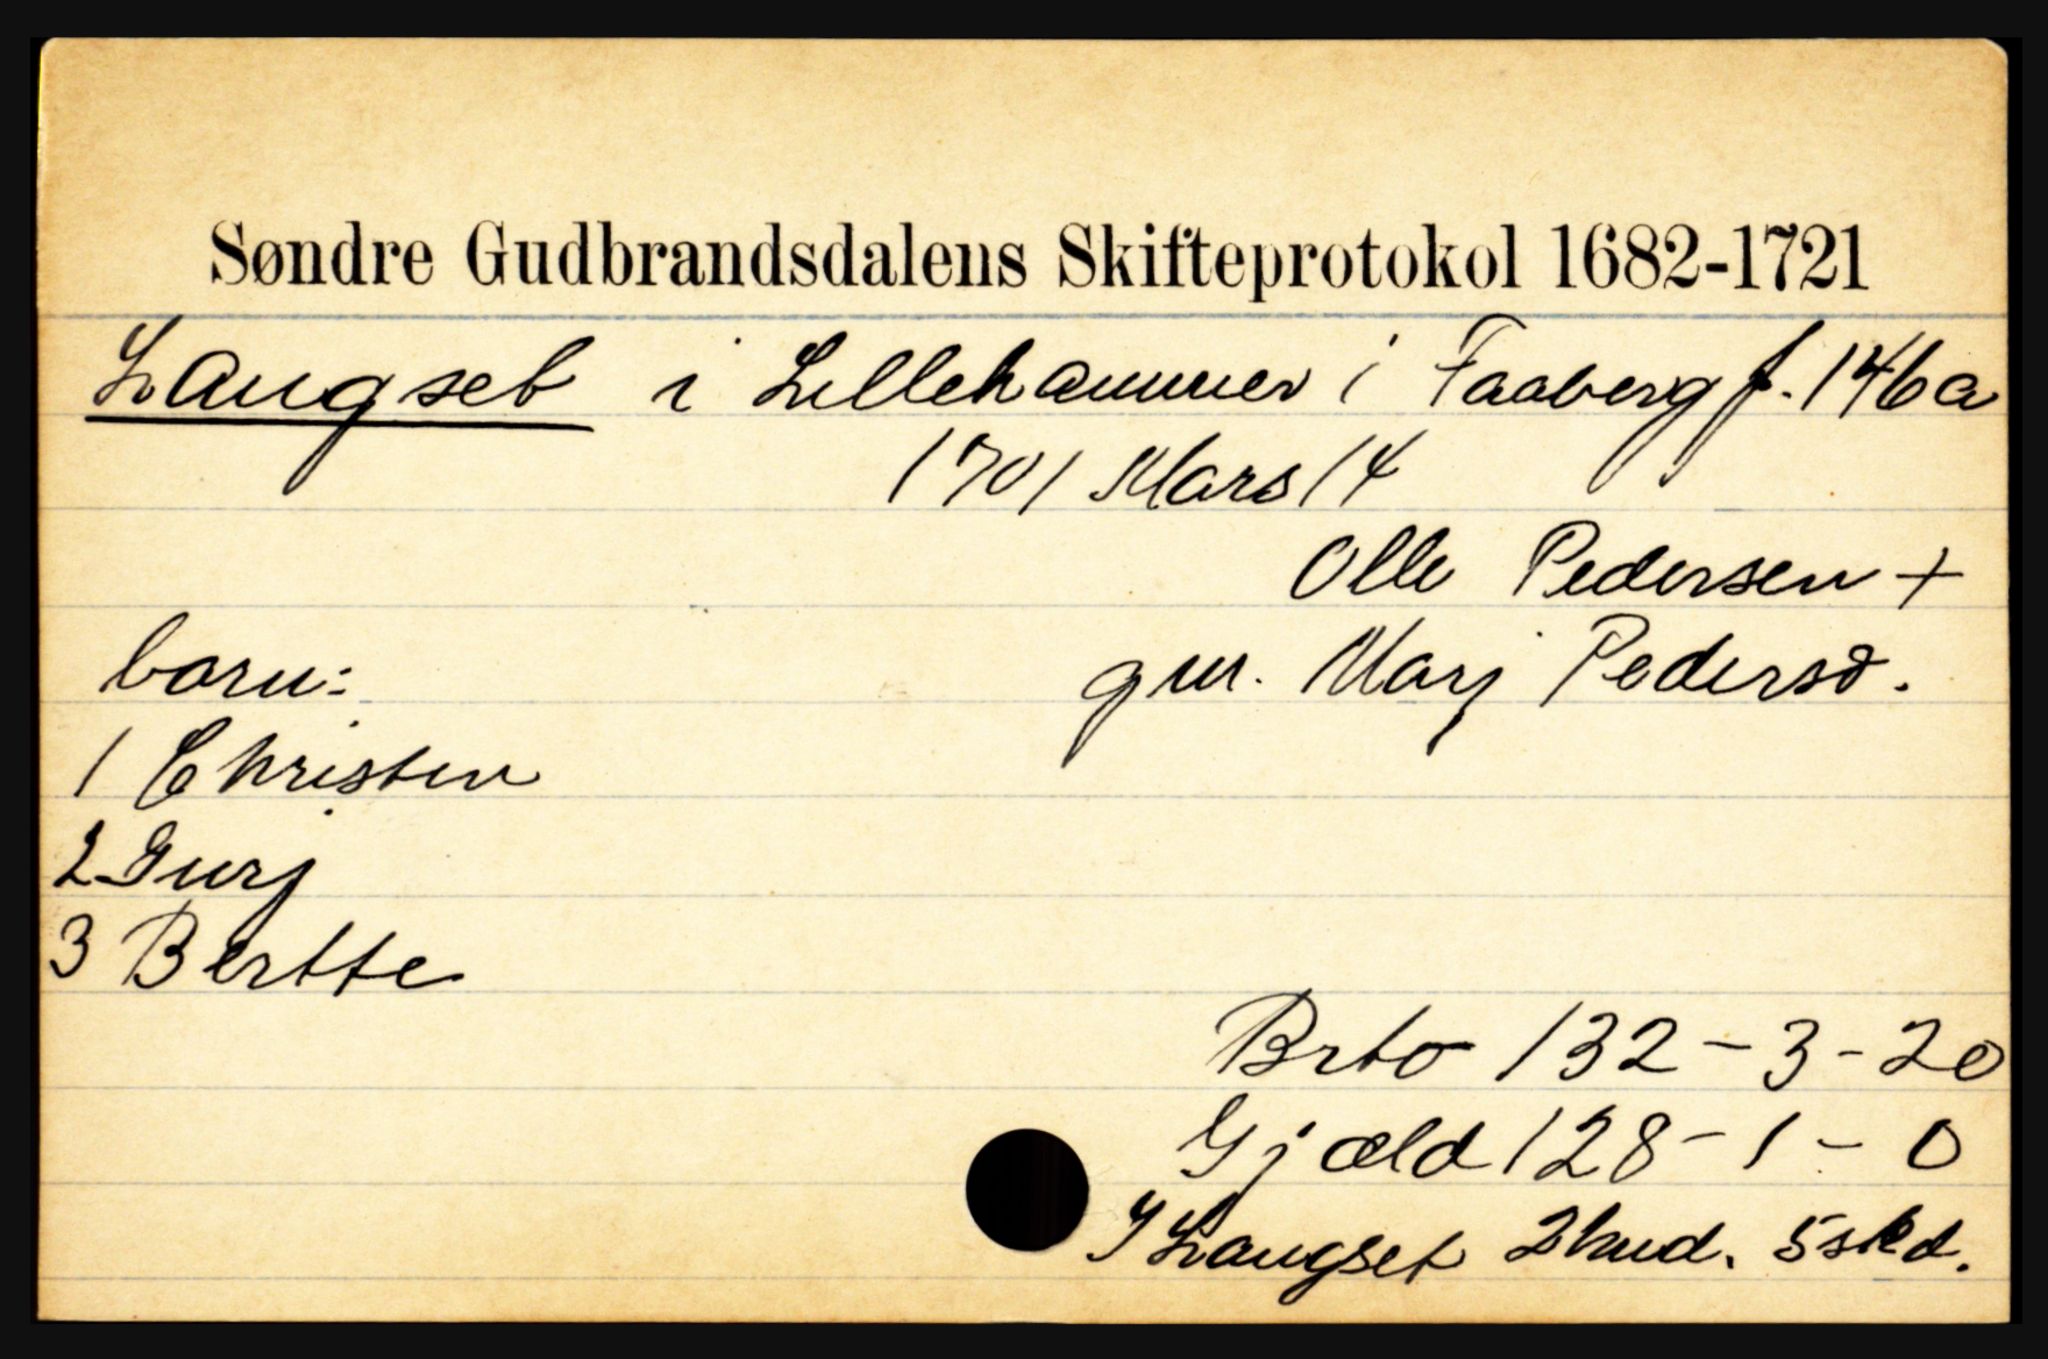 Søndre Gudbrandsdalens Skifteprotokol 1682-1721
Langset i Lillehammer i Faaberg f. 146a
1701 Mars 14
Olle Pedersen +
born: gm. Marj Pedersd.
1 Christen
2 Gurj
3 Bertte
Brto 132-3-20
Gjæld 128-1-0
I Langset 2 hud. 5 skd.